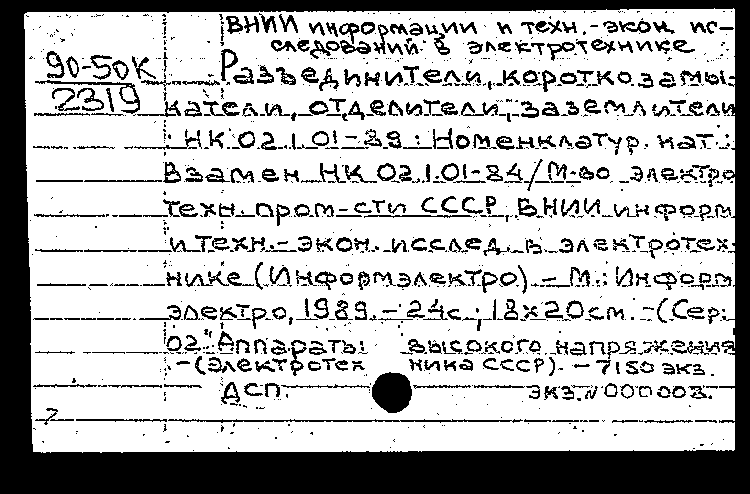 ВНИИ информации и техн.-экон. ис-
следований в электротехнике
90-50К
2319
Разъединители, короткозамы-
катели, отделители, заземлители
: НК 02.1.01-89 : Номенклатур. кат. :
Взамен НК 02.1.01-84 / М-во электро
техн. пром-сти СССР, ВНИИ информ
и техн.-экон. исслед. в электротех-
нике (Информэлектро). - М.: Информ
электро, 1989. - 24с.; 18х20см. - (Сер.
02. Аппараты высокого напряжения
. - (Электротехника СССР). - 7150 экз.
ДСП. экз. N 000008.